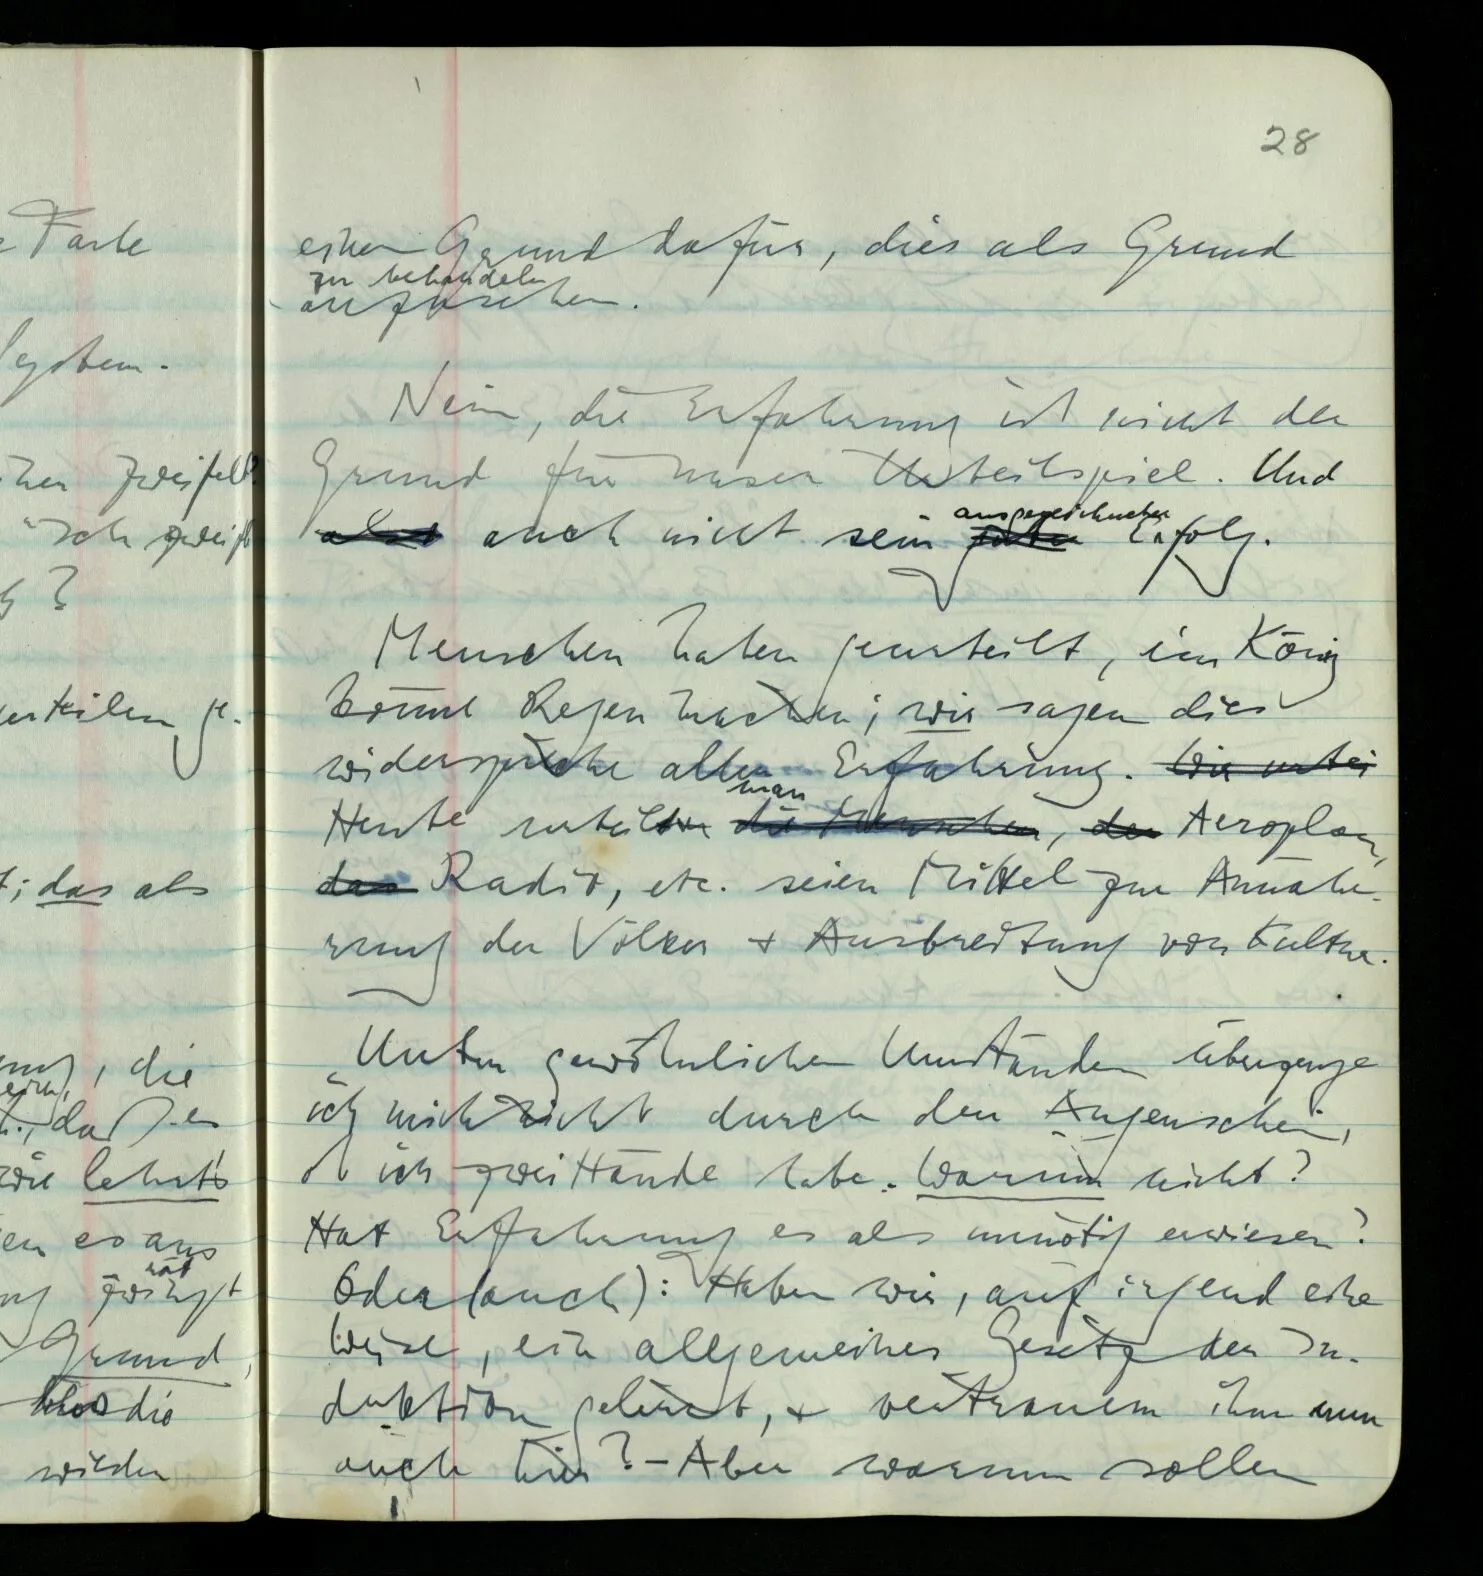 e Farbe
System.
zweifelt?
zweifl
?
urteilen ge-
; das als
die
, daß es
wie lehrt's
en es aus
rät
zwingt
Grund,
blos die
wieder
28
einen Grund dafür, dies als Grund
zu behandeln
anzusehen.
Nein, die Erfahrung ist nicht der
Grund für unser Urteilsspiel. Und
ausgezeichneter
also auch nicht sein guter Erfolg.
Menschen haben geurteilt, ein König
könne Regen machen; wir sagen dies
widerspräche aller Erfahrung. Wir urtei
man
Heute urteilen die Menschen, der Aeroplan,
das Radio, etc. seien Mittel zur Annähe-
rung der Völker & Ausbreitung von Kultur.
Unter gewöhnlichen Umständen überzeuge
ich mich nicht durch den Augenschein,
ob ich zwei Hände habe. Warum nicht?
Hat Erfahrung es als unnötig erwiesen?
Oder (auch): Haben wir, auf irgend eine
Weise, ein allgemeines Gesetz der In-
duktion gelernt, & vertrauen ihm nun
auch hier? – Aber warum sollen